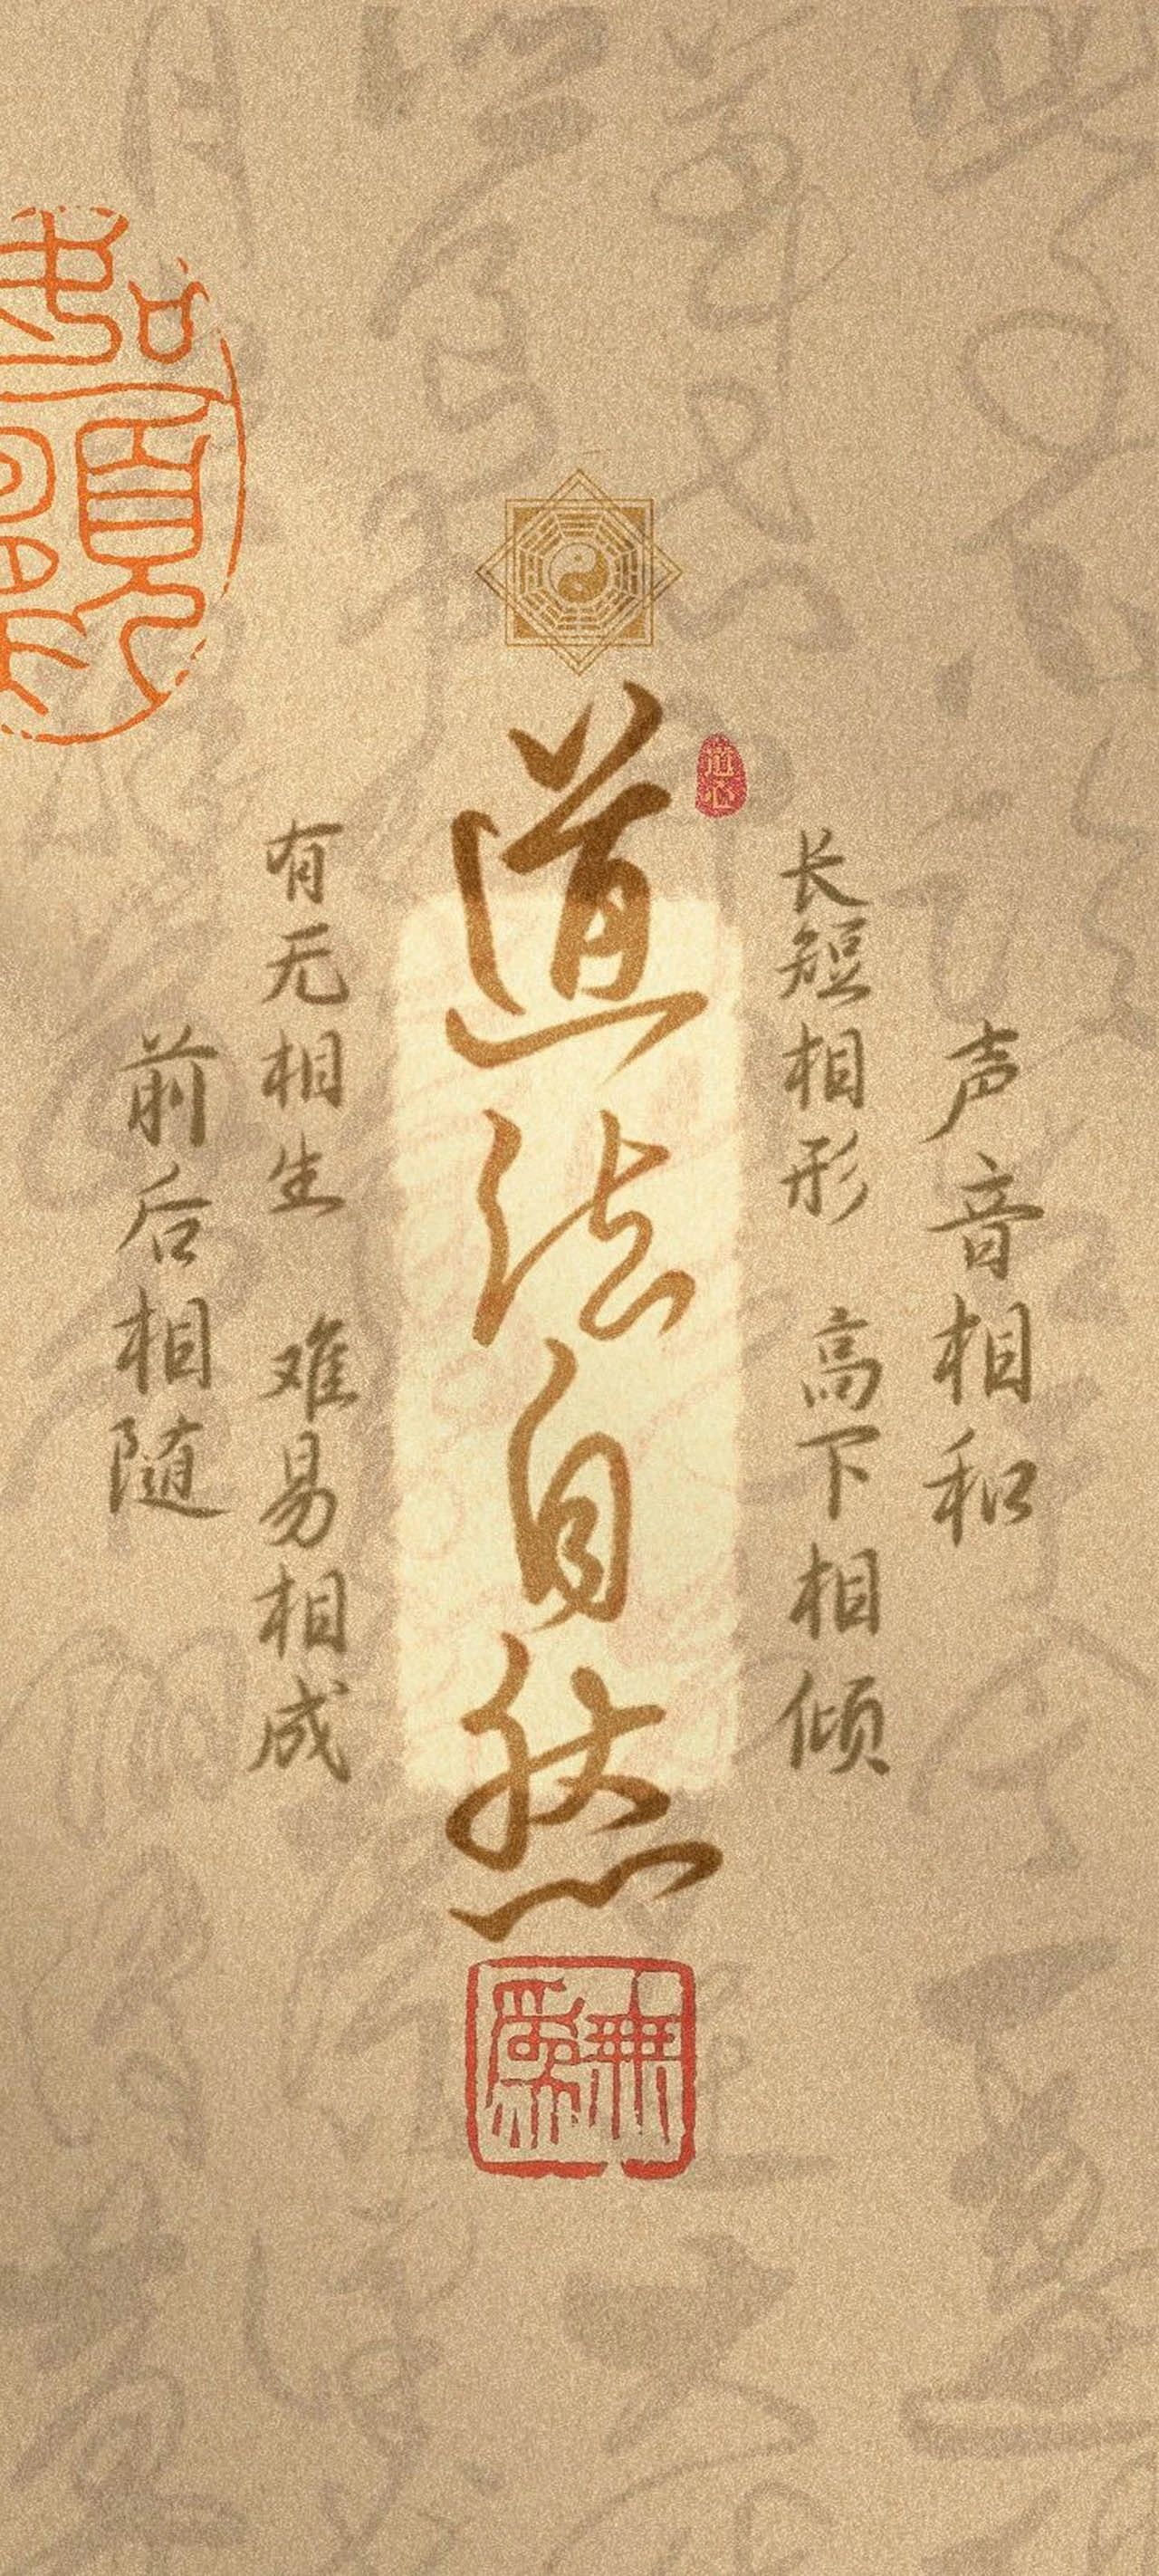 道法自然
道心
有无相生 难易相成
长短相形 高下相倾
声音相和
前后相随
無為